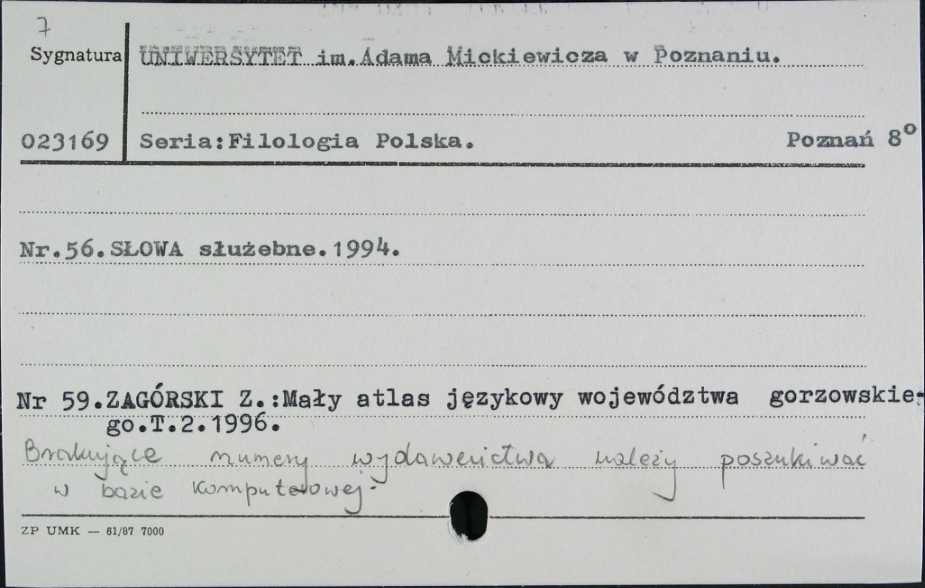 7
Sygnatura UNIWERSYTET im.Adama Mickiewicza w Poznaniu.
023169 Seria:Filologia Polska. Poznań 8°
Nr.56.SŁOWA służebne.1994.
Nr 59.ZAGÓRSKI Z.:Mały atlas językowy województwa gorzowskie-
go.T.2.1996.
Brakujące numery wydawnictwa należy poszukiwać
w bazie komputerowej.
ZP UMK — 61/87 7000